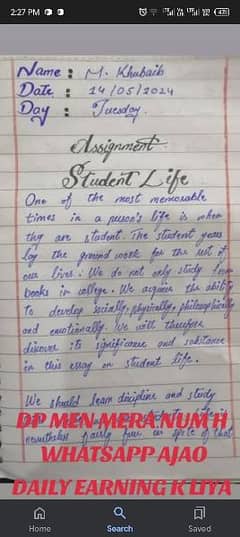 2:27 PM
Name : M. Khubaib
Date : 14/05/2024
Day : Tuesday.
Assignment
Student Life
One of the most memorable
times in a person's life is when
thy are student. The student years
lay the ground work for the rest of
our lives. We do not only study from
books in college. We acquire the ability
to develop socially, physically, philosophically
and emotionally. We will therefore
discover its significance and substance
in this essay on student life.
We should learn discipline and study
DP MEN MERA NUM H
nevertheless fairly fun in spite of that
WHATSAPP AJAO
DAILY EARNING K LIYA
Home
Search
Saved